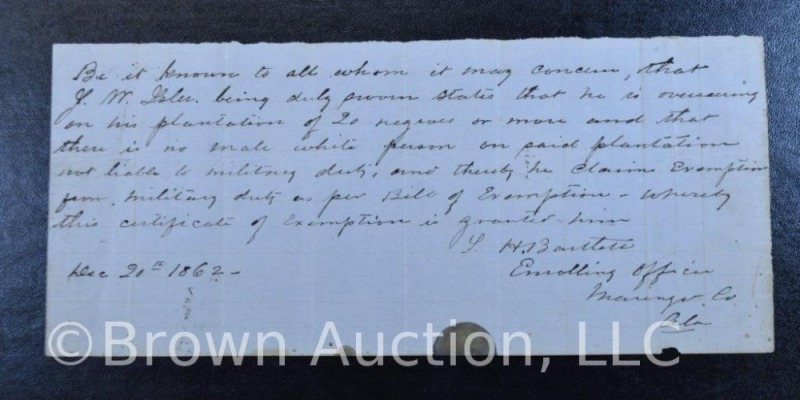 Be it known to all whom it may concern, that
J. W. being duly sworn states that he is overseeing
on his plantation of 20 negroes or more and that
there is no male white person on said plantation
not liable to military duty, and thereby he claims Exemption
from military duty as per Bill of Exemption - whereby
this certificate of Exemption is granted him
S. H. Bartlett
Dec 20th 1862 - Enrolling Officer
Marengo Co
Ala
©Brown Auction, LLC